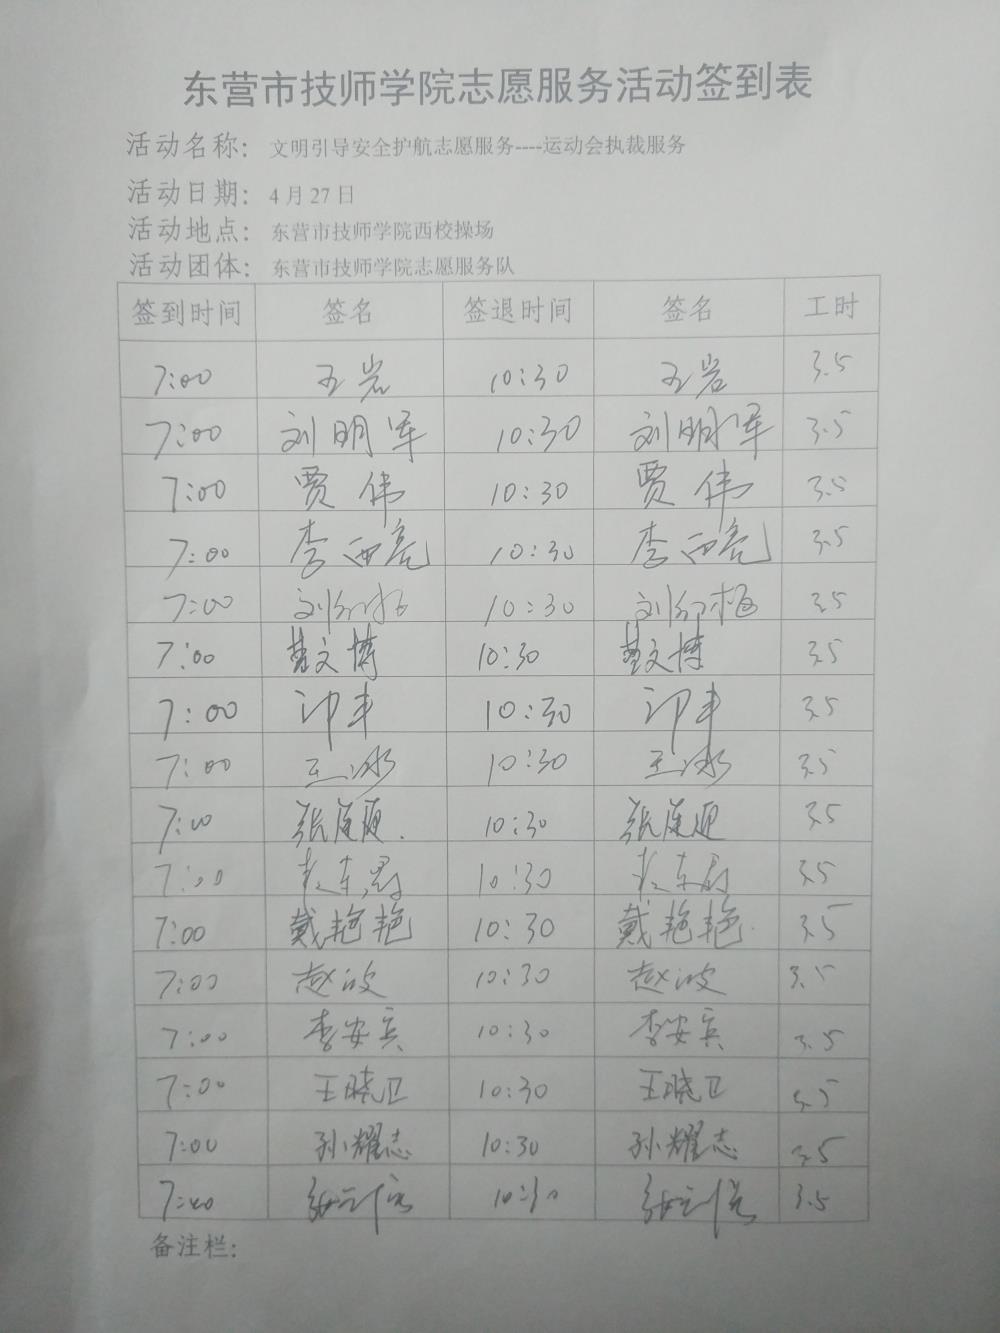 东营市技师学院志愿服务活动签到表
活动名称： 文明引导安全护航志愿服务----运动会执裁服务
活动日期： 4 月 27 日
活动地点： 东营市技师学院西校操场
活动团体： 东营市技师学院志愿服务队
签到时间 签名 签退时间 签名 工时
7:00 王岩 10:30 王岩 3.5
7:00 刘明军 10:30 刘明军 3.5
7:00 贾伟 10:30 贾伟 3.5
7:00 李西亮 10:30 李西亮 3.5
7:00 刘 10:30 刘 3.5
7:00 曹文博 10:30 曹文博 3.5
7:00 10:30 3.5
7:00 王冰 10:30 王冰 3.5
7:00 张莲迎 10:30 张莲迎 3.5
7:00 10:30 3.5
7:00 戴艳艳 10:30 戴艳艳 3.5
7:00 赵波 10:30 赵波 3.5
7:00 李安宾 10:30 李安宾 3.5
7:00 王晓卫 10:30 王晓卫 3.5
7:00 孙耀志 10:30 孙耀志 3.5
7:00 张 10:30 张 3.5
备注栏：